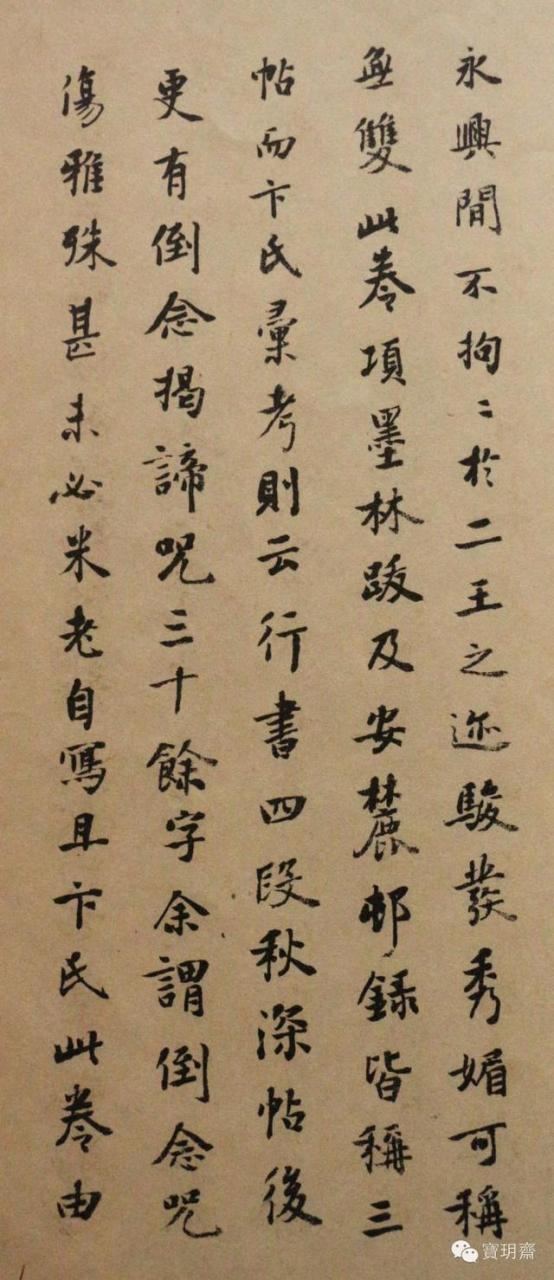 永興間不拘〻於二王之迹駿發秀媚可稱
無雙此卷項墨林跋及安麓邨錄皆稱三
帖而卞氏彙考則云行書四段秋深帖後
更有倒念揭諦咒三十餘字余謂倒念咒
傷雅殊甚未必米老自寫且卞氏此卷由
寶玥齋